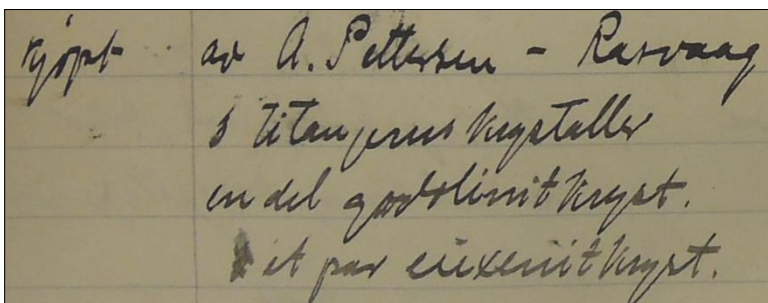 kjøpt av A. Pettersen - Rasvaag
5 titanjernskrystaller
en del gadolinitkryst.
et par euxenitkryst.